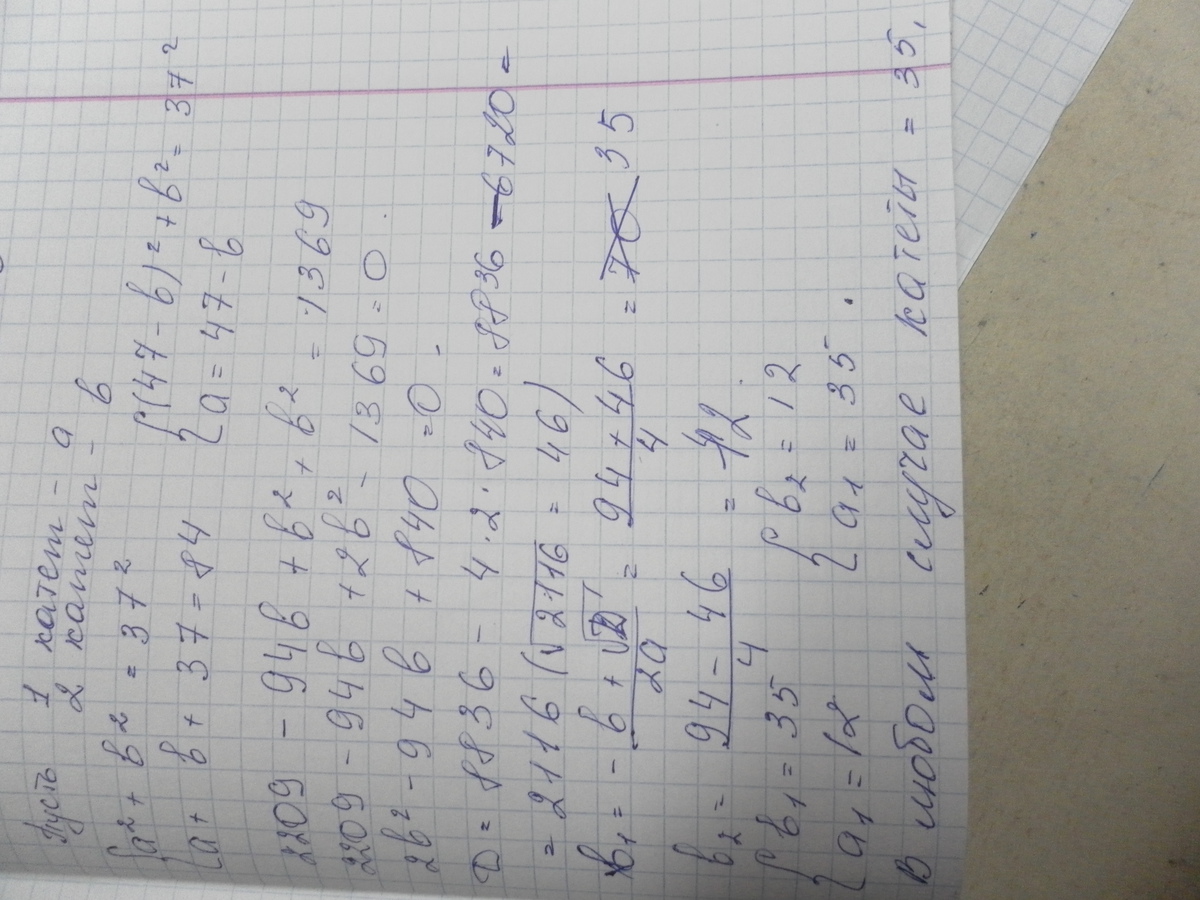 Пусть 1 катет - a
2 катет - в
{a² + в² = 37²
{a + в + 37 = 84
{(47 - в)² + в² = 37²
{a = 47 - в
2209 - 94в + в² + в² = 1369
2209 - 94в + 2в² - 1369 = 0
2в² - 94в + 840 = 0
D = 8836 - 4·2·840 = 8836 - 6720 =
= 2116 (√2116 = 46)
в₁ = (-в + √D)/2a = (94 + 46)/4 = 35
в₂ = (94 - 46)/4 = 12
{в₁ = 35
{a₁ = 12
{в₂ = 12
{a₁ = 35.
В любом случае катеты = 35,